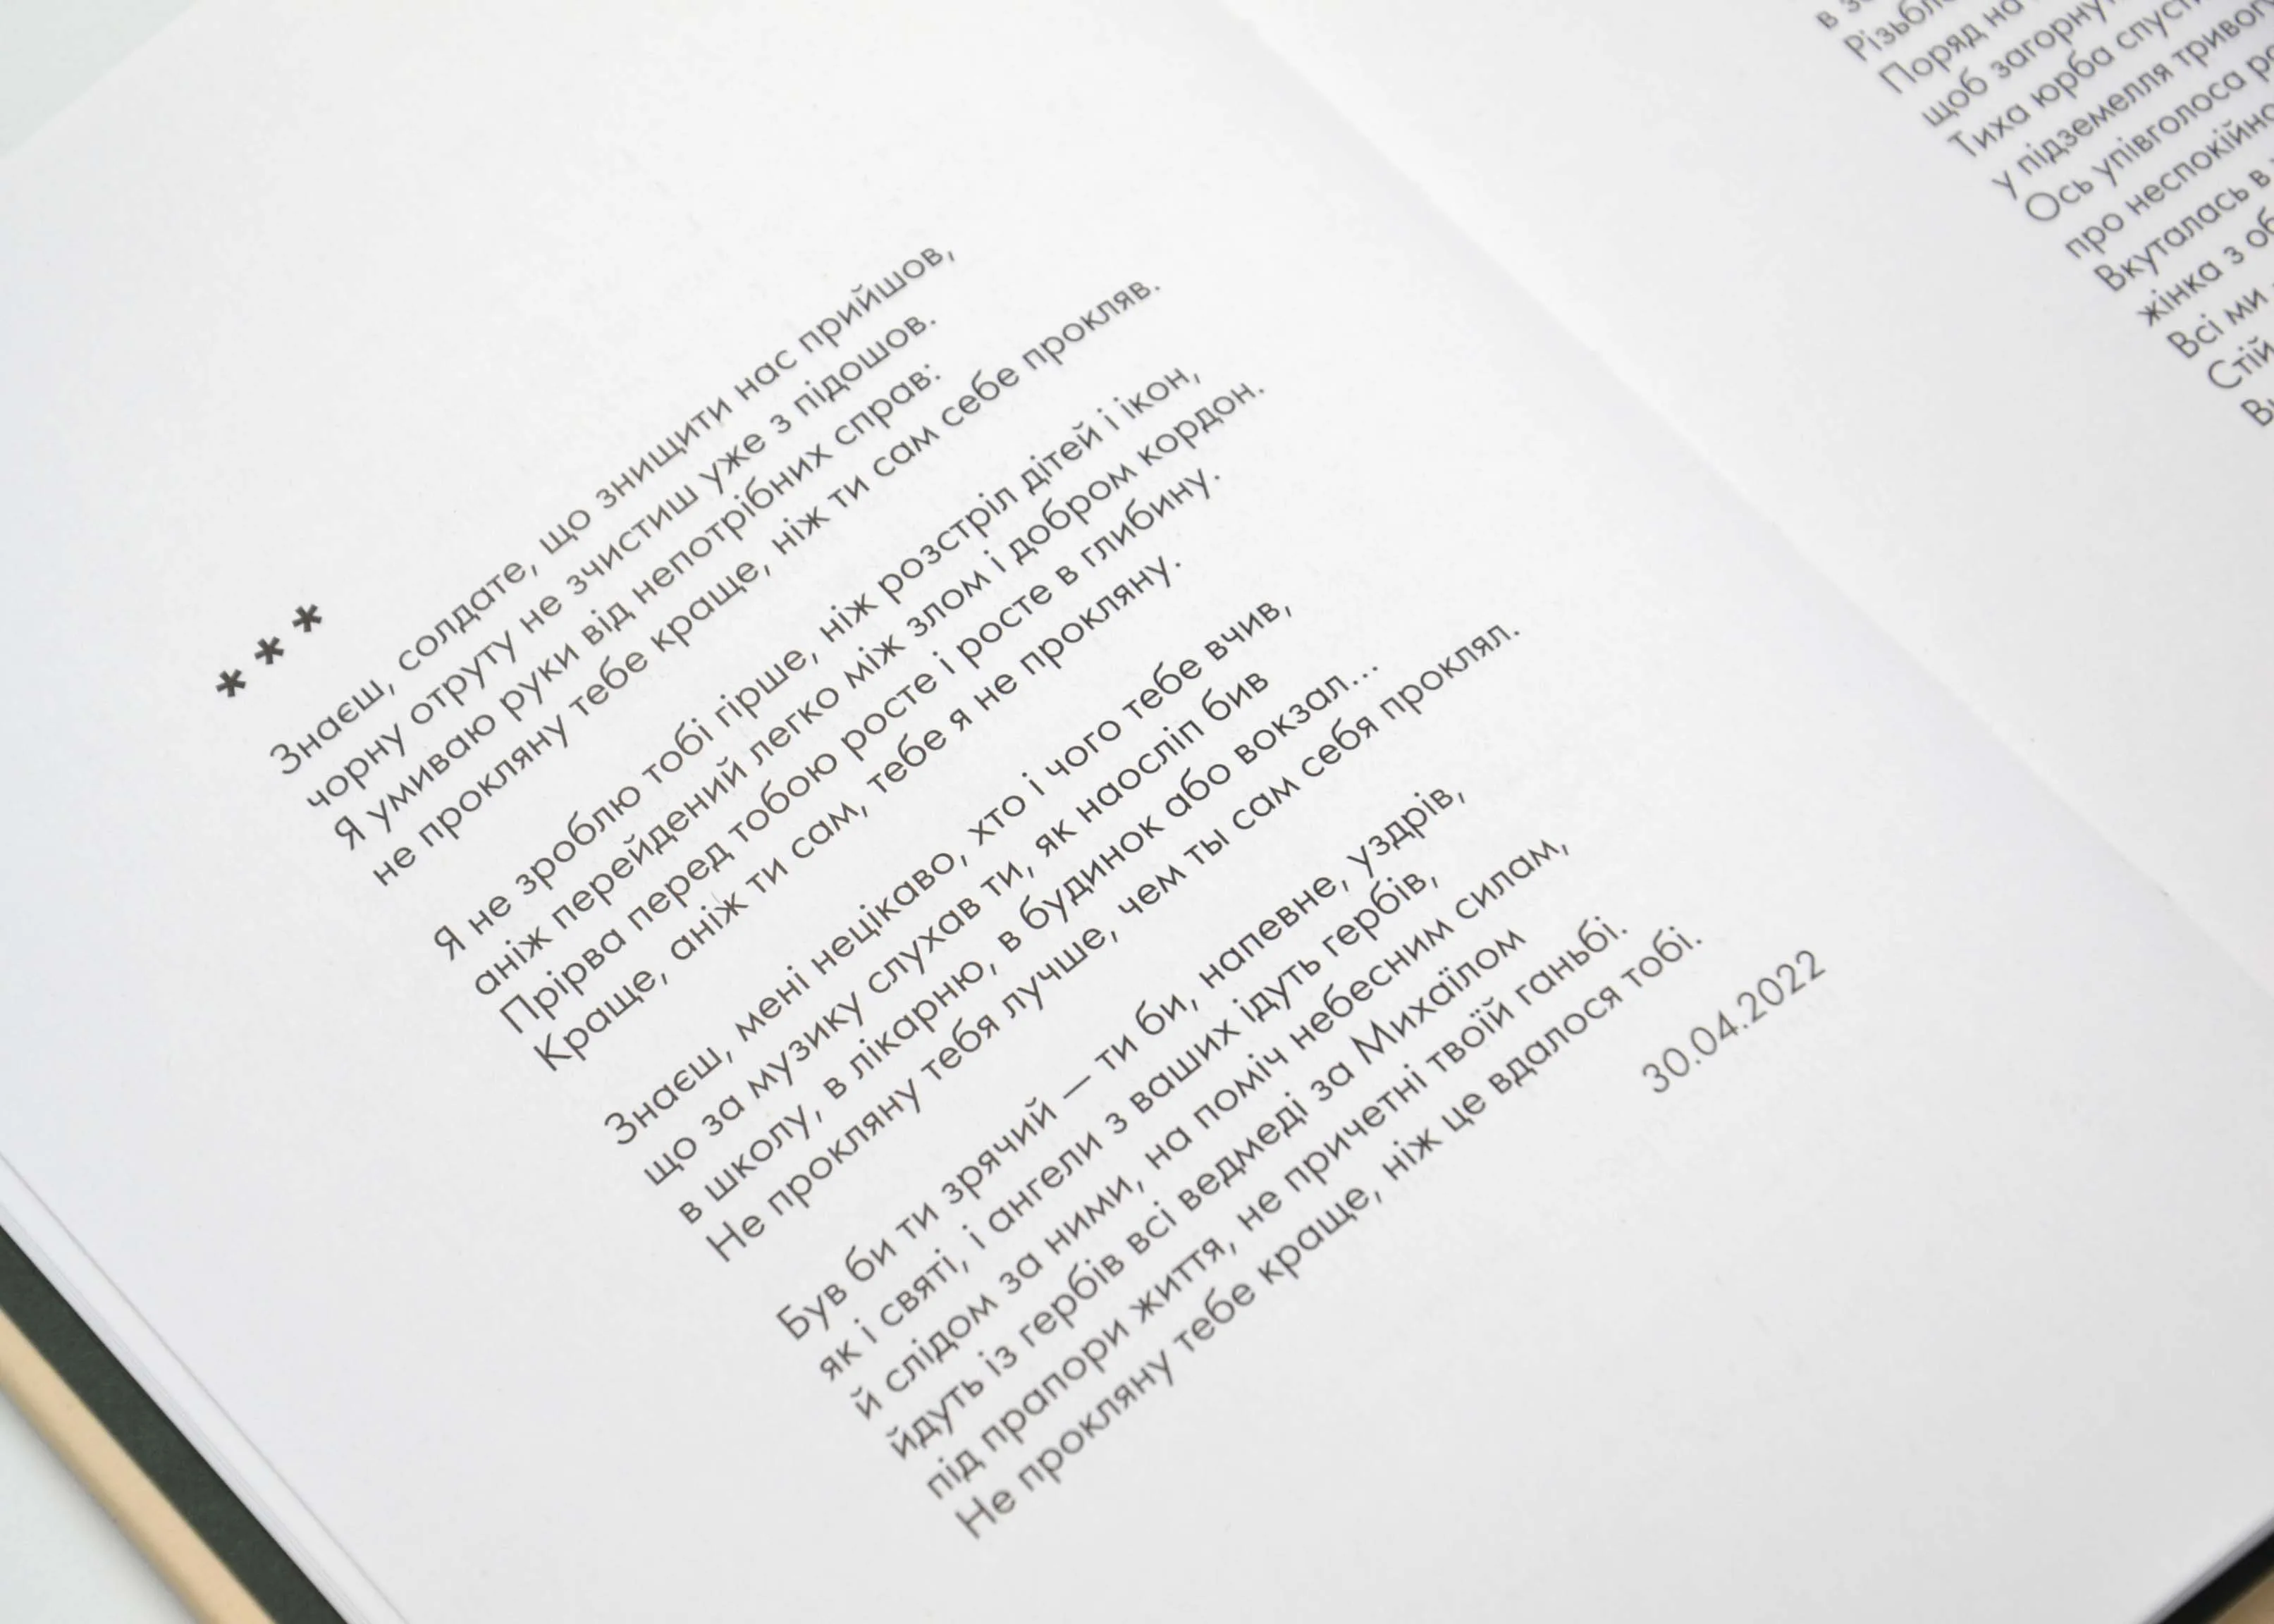 * * *
Знаєш, солдате, що знищити нас прийшов,
чорну отруту не зчистиш уже з підошов.
Я умиваю руки від непотрібних справ:
не прокляну тебе краще, ніж ти сам себе прокляв.
Я не зроблю тобі гірше, ніж розстріл дітей і ікон,
аніж перейдений легко між злом і добром кордон.
Прірва перед тобою росте і росте в глибину.
Краще, аніж ти сам, тебе я не прокляну.
Знаєш, мені нецікаво, хто і чого тебе вчив,
що за музику слухав ти, як наосліп бив
в школу, в лікарню, в будинок або вокзал...
Не прокляну тебя лучше, чем ты сам себя проклял.
Був би ти зрячий — ти би, напевне, уздрів,
як і святі, і ангели з ваших ідуть гербів,
й слідом за ними, на поміч небесним силам,
йдуть із гербів всі ведмеді за Михаїлом
під прапори життя, не причетні твоїй ганьбі.
Не прокляну тебе краще, ніж це вдалося тобі.
30.04.2022
Поряд
щоб
Тиха юрба
у підземелля
Ось упівголоса
про
Вкуталась в
жінка з
Всі ми